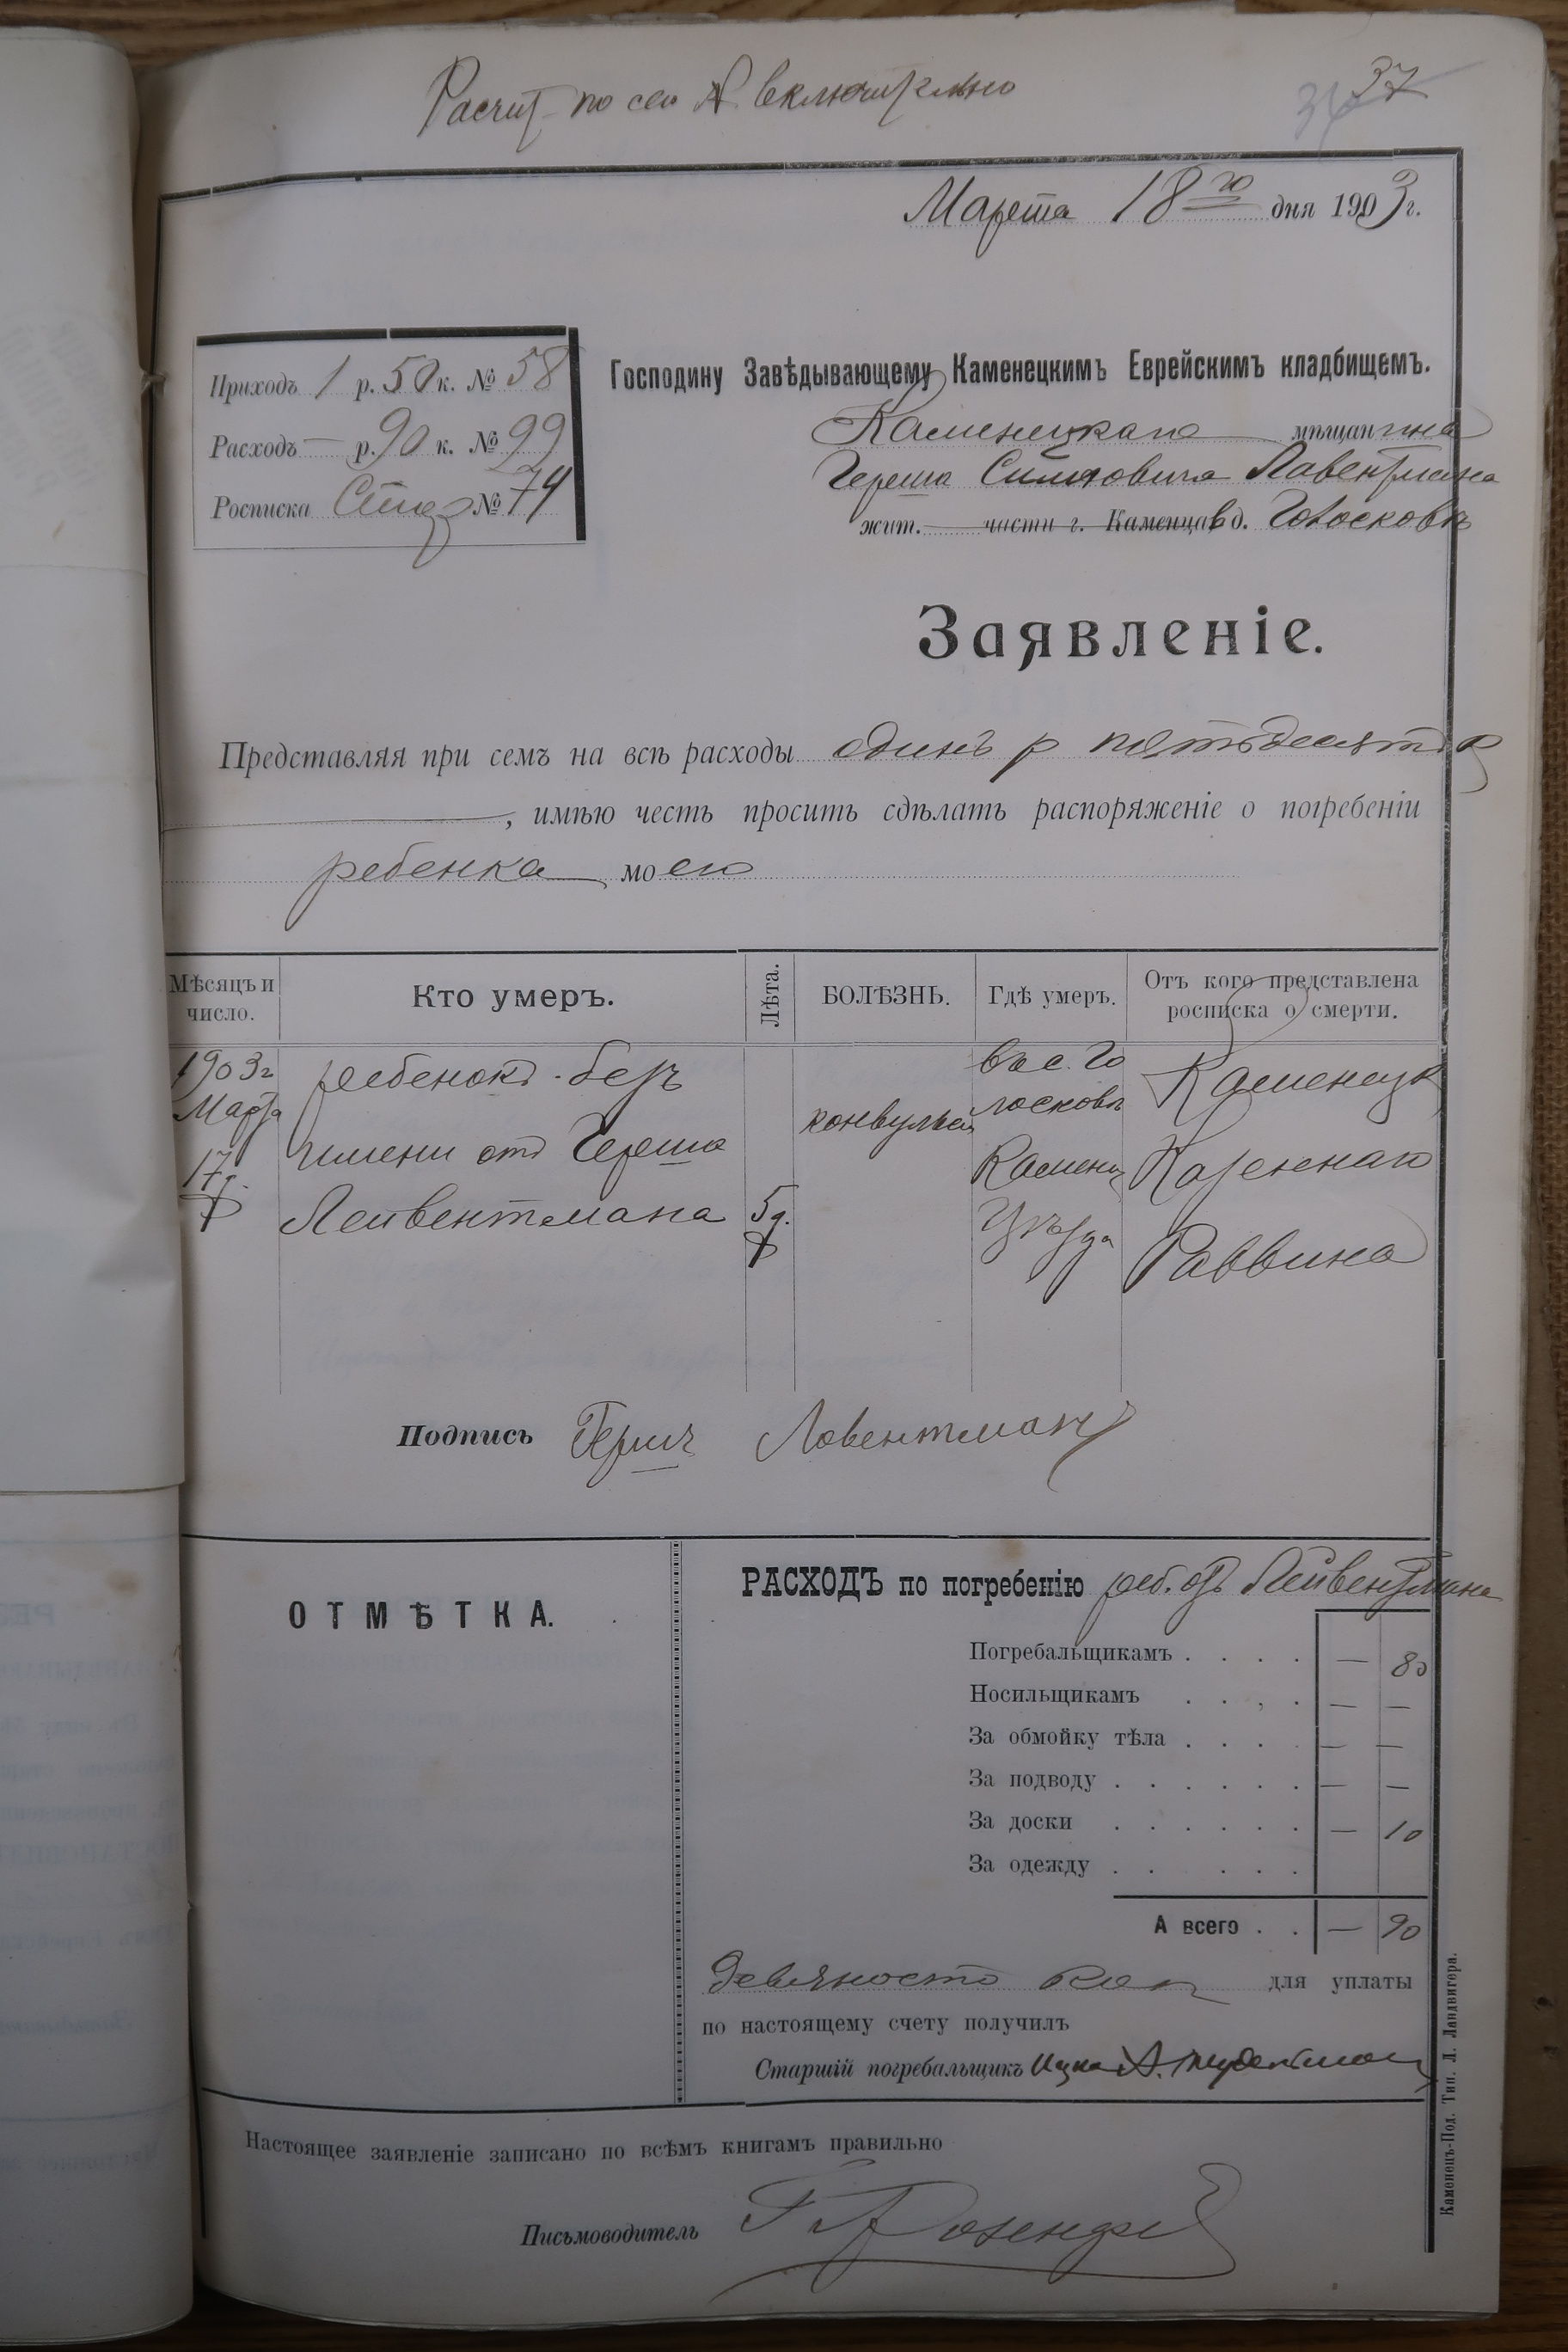 Расчит по сей № включительно
37
Марта 18го дня 1903 г.
Приходъ 1 р. 50 к. № 58
Расходъ — р. 90 к. № 99
Росписка № 74
Господину Завѣдывающему Каменецкимъ Еврейскимъ кладбищемъ.
Каменецкаго мѣщанина
Герша Лавентмана
жит. части г. Каменца в д. Голосковѣ
Заявленіе.
Представляя при семъ на всѣ расходы одинъ р пятьдесят к
, имѣю честь просить сдѣлать распоряженіе о погребеніи
ребенка моего
Мѣсяцъ и число.
Кто умеръ.
Лѣта.
БОЛѢЗНЬ.
Гдѣ умеръ.
Отъ кого представлена росписка о смерти.
1903г
Марта
17д.
ребенокъ безъ
имени отъ Герша
Лейвентмана
5д.
конвульсія
въ с. Го
лосковѣ
Каменец
Уѣзда
Каменецк
Казеннаго
Раввина
Подпись Герш Ловентманъ
ОТМѢТКА.
РАСХОДЪ по погребенію реб. отъ Лейвентмана
Погребальщикамъ . . . . — 80
Носильщикамъ . . , . — —
За обмойку тѣла . . . . — —
За подводу . . . . . . — —
За доски . . . . . . — 10
За одежду . . . . .
А всего . . — 90
девяносто коп для уплаты
по настоящему счету получилъ
Старшій погребальщикъ
Настоящее заявленіе записано по всѣмъ книгамъ правильно
Письмоводитель
Каменецъ-Под. Тип. Л. Ландвигера.